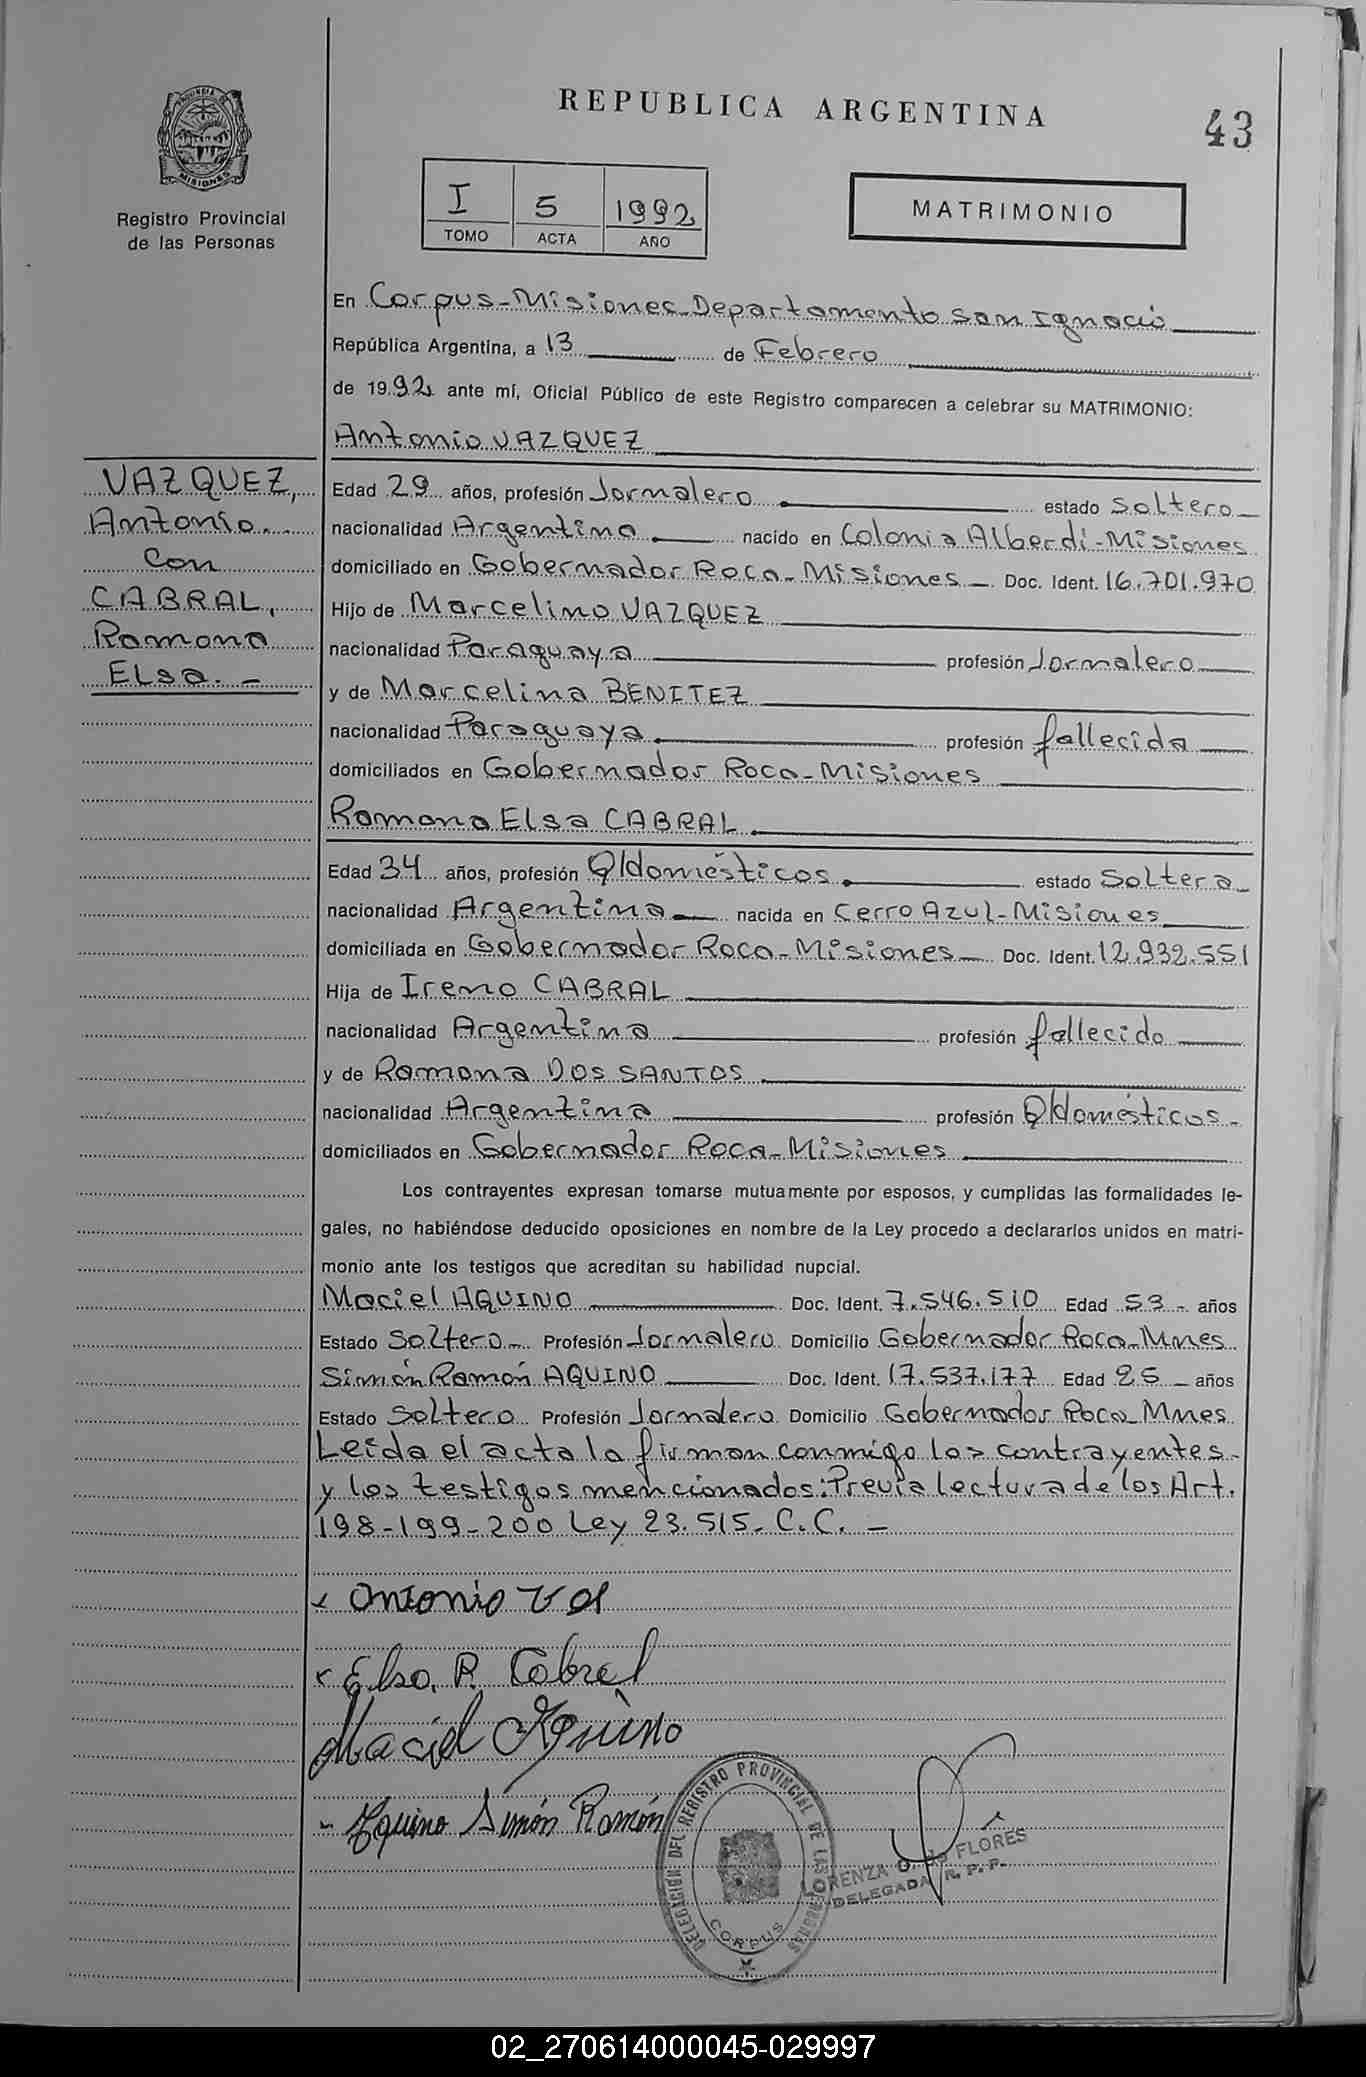 REPUBLICA ARGENTINA
43
PROVINCIA DE
MISIONES
Registro Provincial
de las Personas
I 5 1992
TOMO ACTA AÑO
MATRIMONIO
En Corpus-Misiones-Departamento San Ignacio
República Argentina, a 13 de Febrero
de 1992 ante mí, Oficial Público de este Registro comparecen a celebrar su MATRIMONIO:
Antonio VAZQUEZ
VAZQUEZ,
Antonio
con
CABRAL,
Ramona
Elsa.-
Edad 29 años, profesión Jornalero estado Soltero
nacionalidad Argentina nacido en Colonia Alberdi-Misiones
domiciliado en Gobernador Roca-Misiones Doc. Ident. 16.701.970
Hijo de Marcelino VAZQUEZ
nacionalidad Paraguaya profesión Jornalero
y de Marcelina BENITEZ
nacionalidad Paraguaya profesión fallecida
domiciliados en Gobernador Roca-Misiones
Ramona Elsa CABRAL
Edad 34 años, profesión Q/domésticos estado Soltera
nacionalidad Argentina nacida en Cerro Azul-Misiones
domiciliada en Gobernador Roca-Misiones Doc. Ident. 12.932.551
Hija de Ireno CABRAL
nacionalidad Argentina profesión fallecido
y de Ramona DOS SANTOS
nacionalidad Argentina profesión Q/domésticos-
domiciliados en Gobernador Roca-Misiones
Los contrayentes expresan tomarse mutuamente por esposos, y cumplidas las formalidades le-
gales, no habiéndose deducido oposiciones en nombre de la Ley procedo a declararlos unidos en matri-
monio ante los testigos que acreditan su habilidad nupcial.
Maciel AQUINO Doc. Ident. 7.546.510 Edad 53 años
Estado Soltero Profesión Jornalero Domicilio Gobernador Roca-Mnes
Simón Ramón AQUINO Doc. Ident. 17.537.177 Edad 25 años
Estado Soltero Profesión Jornalero Domicilio Gobernador Roca-Mnes
Leída el acta la firman conmigo los contrayentes-
y los testigos mencionados: Previa lectura de los Art.
198-199-200 Ley 23.515- C.C.-
Antonio
Elsa. R. Cabral
Maciel Aquino
Aquino Simón Ramón
DELEGACION DEL REGISTRO PROVINCIAL DE LAS PERSONAS
CORPUS
LORENZA O. de FLORES
DELEGADA R. P. P.
02_270614000045-029997